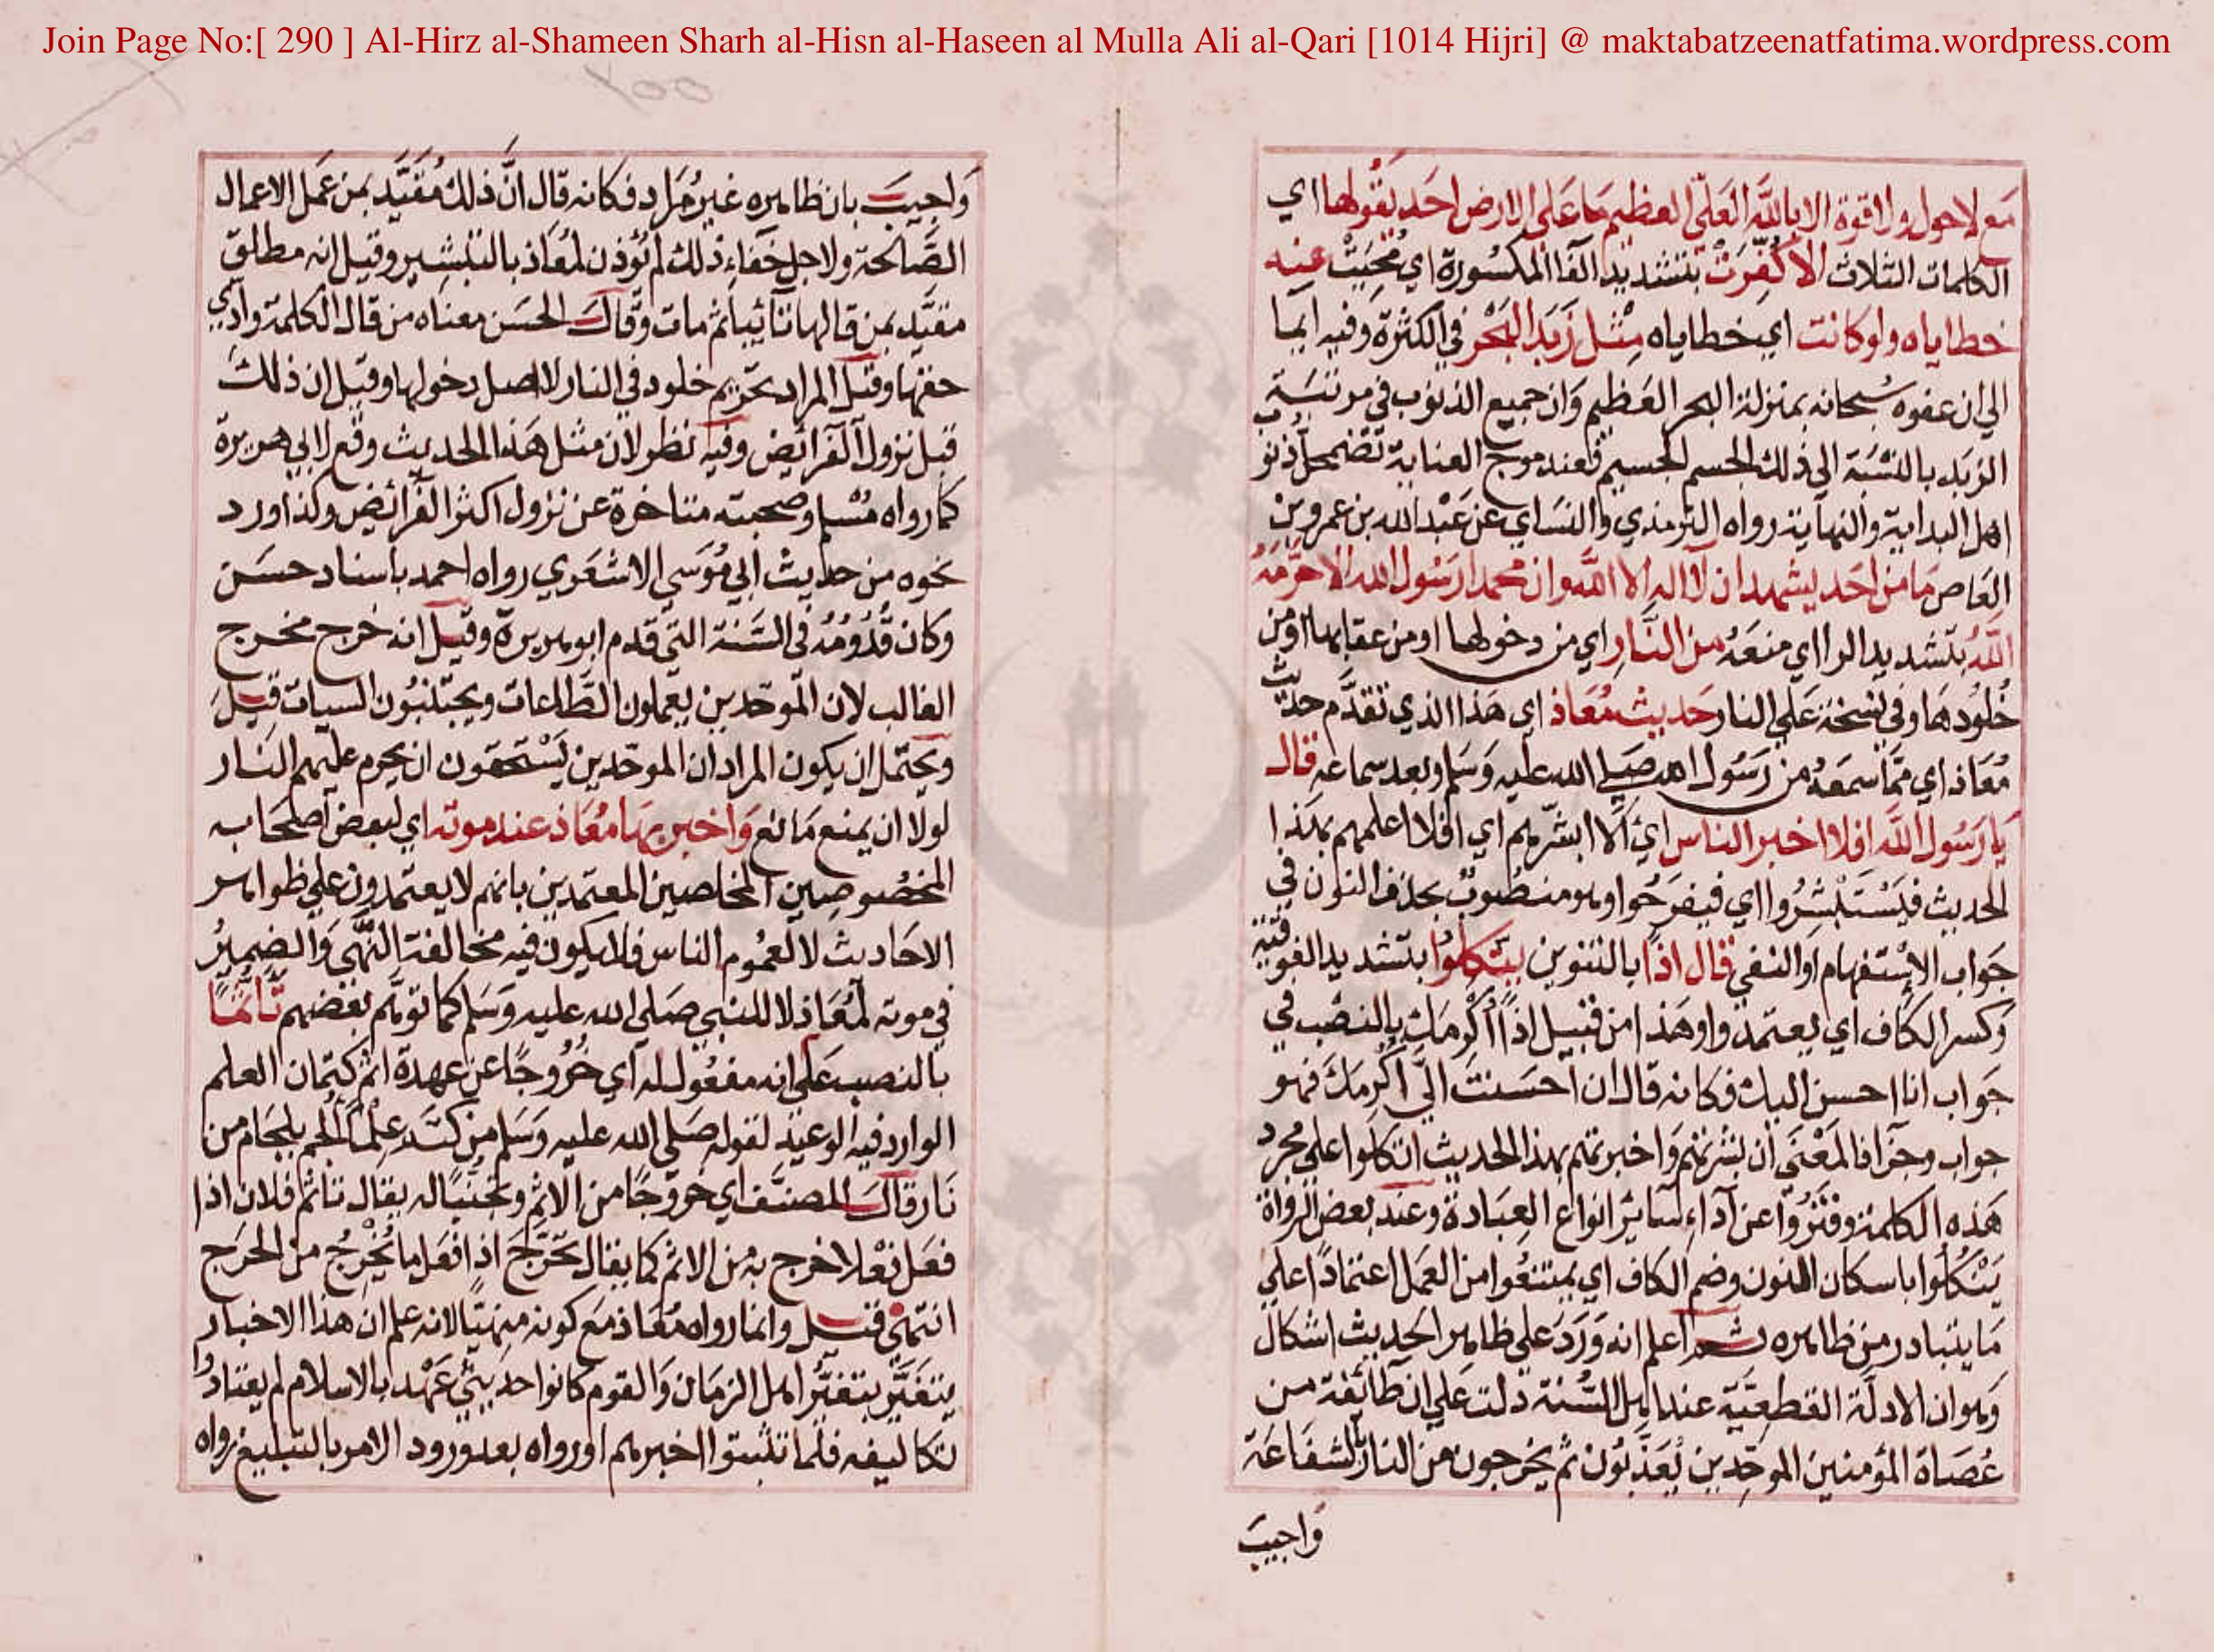 Join Page No:[ 290 ] Al-Hirz al-Shameen Sharh al-Hisn al-Haseen al Mulla Ali al-Qari [1014 Hijri] @ maktabatzeenatfatima.wordpress.com
٢٥٥
مَع لاحول ولا قوة الا بالله العَليّ العظيم مَا عَلى الارض احَد يقُولها اي
الكلمات الثلاث الا كُفِّرَتْ بتشديد الفا المكسُورة اي مُحِيَتْ عنه
خطاياه ولو كانت اي خطاياه مِثْل زَبَد البَحْر في الكثرة وفيه ايما
الي ان عفوه سُبحانه بمنزلة البحر العَظيم وَان جميع الذنوب في مرتبَة
الزبَد بالنسْبَة الي ذلك الجسم الجسيم فعند موج العناية تضمحل ذنو
اهل البداية والنهاية رواه الترمذي والنسَاي عن عَبْد الله بن عمرو بن
العَاص مَا من احَد يشهد ان لا اله الا الله وان محمدا رَسُول الله الا حرّمَهُ
اللهُ بتشديد الرا اي منعَهُ من النَّارِ اي من دخولها او من عقابها او من
خُلُودهَا وفي نسخة عَلي النار حَديث مُعَاذ اي هَذا الذي تقدَّم حديث
مُعَاذ اي ممّا سمعَهُ من رَسُول الله صَلي الله عليه وَسَلم وبعد سماعه قال
يا رَسُول الله افلا اخبر الناس اي الا ابشّرهم اي افلا اعلمهم بهَذا
الحديث فيَسْتَبْشِرُوا اي فيفرَحُوا وهو منصُوبٌ بحذف النون في
جَواب الاسْتفهام او النفي قال اذًا بالتنوين يتّكلوا بتشديد الفوقية
وكسر الكاف اي يعتمدوا وهَذا من قبيل اذًا أكْرِمَك بالنصْب في
جَواب انا احسن اليك فكانه قال ان احسَنتَ اليَّ أكرِمكَ فهو
جواب وجَزا فالمَعْنَي ان بشرتهم وَاخبرتهم بهذا الحديث اتكلوا علي مجرد
هَذه الكلمة وفترُوا عن آداء سَائر انواع العبَادة وعند بعض الرواة
يَنْكُلُوا باسكان النون وضم الكاف اي يمتنعُوا من العمَل اعتمادًا علي
مَا يتبادر من ظاهره ثم اعلم انه وَرَدَ علي ظاهر الحديث اشكال
وَهوان الادلّة القطعيَّة عند اهل السُّنة دلت عَلي ان طائفة من
عُصَاة المؤمنين الموحّدين يُعَذَّبُون ثم يخرجون من النار بالشفاعَة
وَاجيبَ
وَاجيبَ بان ظاهره غيرُ مُرَاد فكانه قال انَّ ذلك مُقيَّد بمن عَمل الاعمال
الصَّالحة ولاجل خَفاءِ ذلك لم يُؤذن لمُعَاذ بالتبشير وقيل انه مطلق
مقيَّد بمن قالها تائبا ثم مات وَقال الحَسَن معناه من قال الكلمة وادّي
حقها وقيل المراد تحريم خلود في النار لا اصل دخولها وقيل ان ذلك
قبل نزول الفرائض وفيه نظر لان مثل هَذا الحديث وقع لابي هريرة
كما رواه مُسْلم وصحبته متاخرة عن نزول اكثر الفرائض وكذا ورد
نحوه من حديث ابي مُوسَي الاشعَري رواه احمد باسناد حسَن
وكان قُدُومُهُ في السَّنة التي قدم ابو هريرة وقيل انه خرج مخرج
الغالب لان الموحّدين يعملون الطّاعات ويجتنبُون السيات قيل
ويحتمل ان يكون المراد ان الموحّدين يَسْتحقون ان يحرم عليهم النَار
لولا ان يمنع مَانع وَاخبر بهَا مُعَاذ عند موته اي لبعض اصحَابه
المخصُوصين المخلصين المعتمدين بانهم لا يعتمدون علي ظواهر
الاحَاديث لا لعمُوم الناس فلا يكون فيه مخالفة النّهي وَالضميرُ
في موته لمُعَاذ لا للنبي صَلي الله عليه وَسَلم كما توهَّم بعضهم تأثُّمًا
بالنصب عَلي انه مفعُول له اي خُرُوجًا عن عهدة اثم كتمان العلم
الوارد فيه الوعيد لقوله صَلي الله عليه وَسَلم من كتَم علمًا ألجم بلجَام من
نَار وقال المصنّف اي خروجًا من الاثم وتجنّبًا له يقال تاثم فلان اذا
فعَل فعْلا خرج به من الاثم كما يقال تحرَّجَ اذا فعَل ما يُخْرِجُ من الحَرَج
انتهيٰ فقيل وانما رواه مُعَاذ مَع كونه منهيًّا لانه علم ان هذا الاخبار
يتغيّر بتغيُّر اهل الزمَان وَالقوم كانوا حديثي عَهْد بالاسلام لم يعتادوا
تكاليفه فلما تثبتوا اخبرهم او رواه بعد ورود الامر بالتبليغ رواه